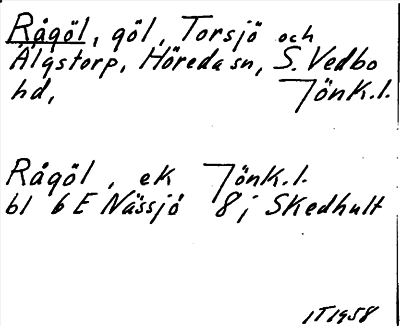 Rågöl, göl, Torsjö och
Älgstorp, Höreda sn, S. Vedbo
hd, Jönk.l.
Rågöl, ek Jönk.l.
bl 6 E Nässjö 8j Skedhult
1T1958